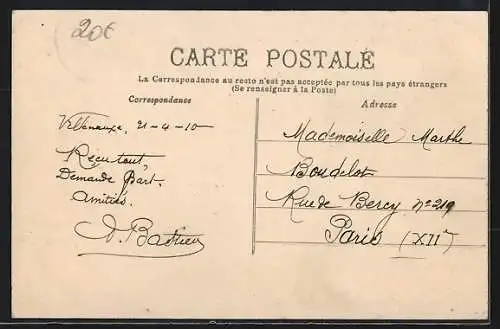 20€
CARTE POSTALE
La Correspondance au recto n'est pas acceptée par tous les pays étrangers
(Se renseigner à la Poste)
Correspondance
Adresse
Villenauxe, 21-4-10
Reçu tout,
Demande Part.
Amitiés.
Mademoiselle Marthe
Boudelot
Rue de Bercy n° 219
Paris (XIIe